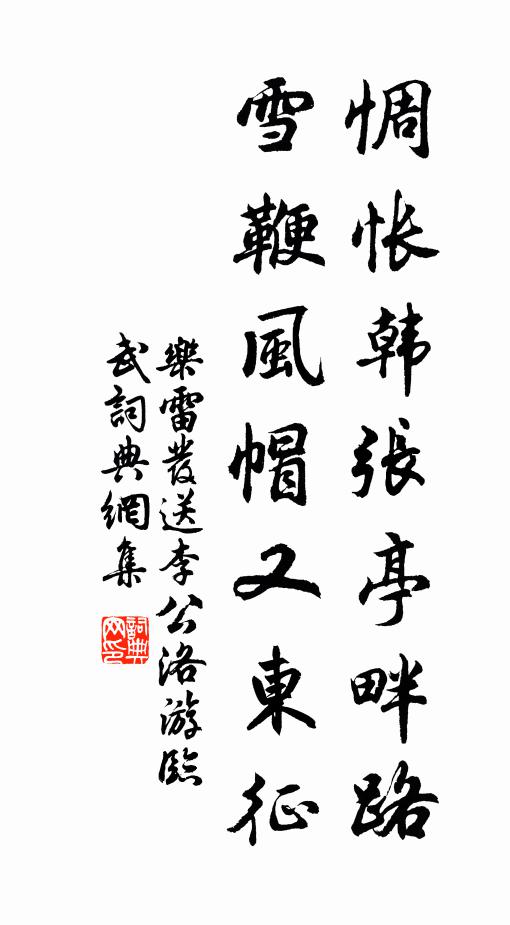 惆怅韩張亭畔路
雪鞭風帽又東征
樂雷發送李公洛游臨
武詞典網集
詞典
网印